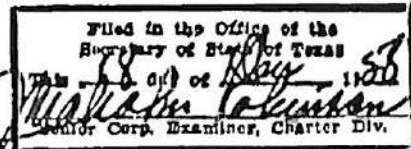 Filed in the Office of the
Secretary of State of Texas
This 18 day of 1953
Robinson
Senior Corp. Examiner, Charter Div.